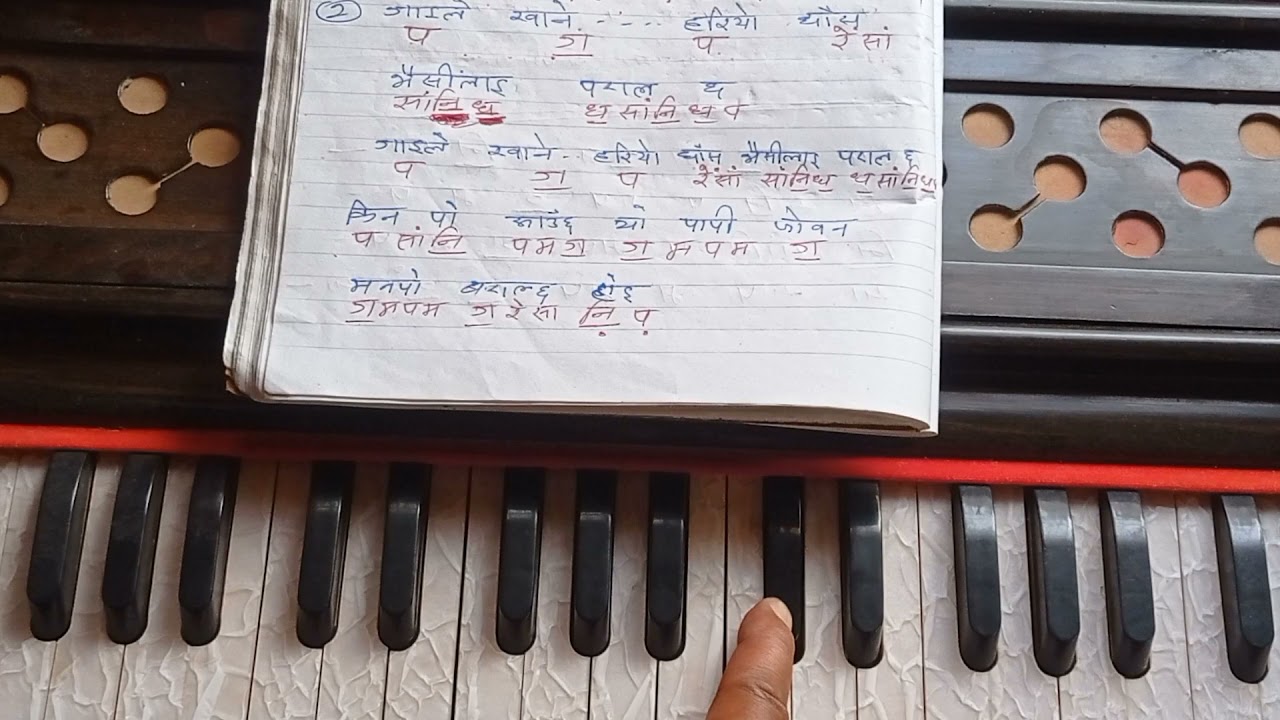 ② गाइले खाने - - - - हरियो घाँस
प ग॒ प रें सां
भैसीलाइ पराल छ
सांनि॒ध॒ ध॒ सांनि॒ ध॒ प
गाइले खाने.. हरियो घाँस भैसीलाइ पराल छ
प ग॒ प रेंसां सांनि॒ध॒ ध॒सांनि॒ध॒
किन पो आउँछ यो पापी जोवन
प सांनि॒ पमग॒ ग॒ मपम ग॒
मनपो बराल्छ होइ
ग॒मपम ग॒रेसा नि़॒ प़